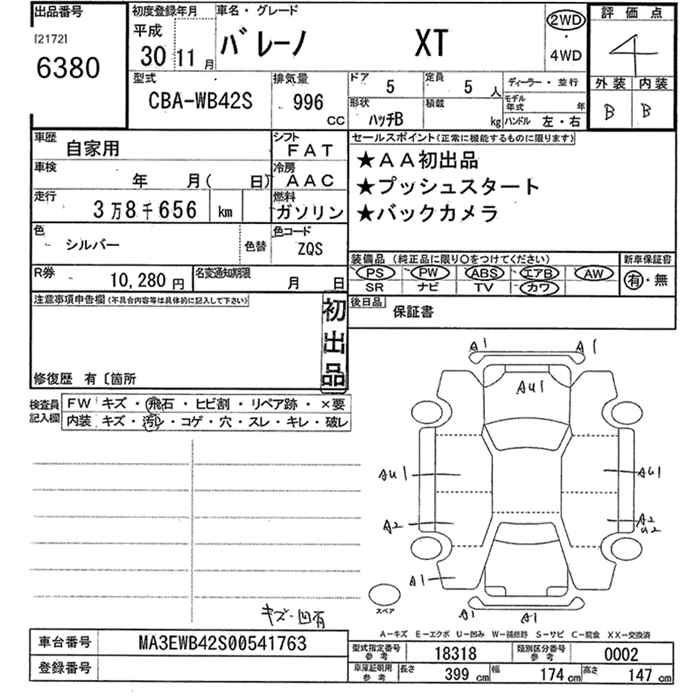 出品番号
[2172]
6380
初度登録年月
平成
30 11 月
車名・グレード
バレーノ XT
2WD
・
4WD
評価点
4
外装 内装
B B
型式
CBA-WB42S
排気量
996 CC
ドア
5
定員
5 人
形状
ハッチB
積載
kg
ディーラー・並行
モデル年式 年
ハンドル 左・右
車歴
自家用
シフト
FAT
車検
年 月( 日)
冷房
AAC
走行
3万8千656 km
燃料
ガソリン
色
シルバー
色替
色コード
ZQS
R券
10,280 円
名変通知期限
月 日
セールスポイント(正常に機能するものに限ります)
★AA初出品
★プッシュスタート
★バックカメラ
装備品 (純正品に限り○をつけてください)
新車保証書
PS PW ABS エアB AW
SR ナビ TV カワ
有・無
注意事項申告欄(不具合内容等は具体的に記入して下さい)
初出品
後日品
保証書
修復歴 有 〔箇所
検査員記入欄
FW キズ・飛石・ヒビ割・リペア跡・×要
内装 キズ・汚レ・コゲ・穴・スレ・キレ・破レ
A1 A1
AU1
AU1 AU1
A2 A2
U2
A1
A1 A1
スペア
キズ・凹有
A―キズ E―エクボ U―凹み W―補修跡 S―サビ C―腐食 XX―交換済
車台番号
MA3EWB42S00541763
登録番号
型式指定番号
参考
18318
類別区分番号
参考
0002
車庫証明用
参考
長さ
399 cm
幅
174 cm
高さ
147 cm